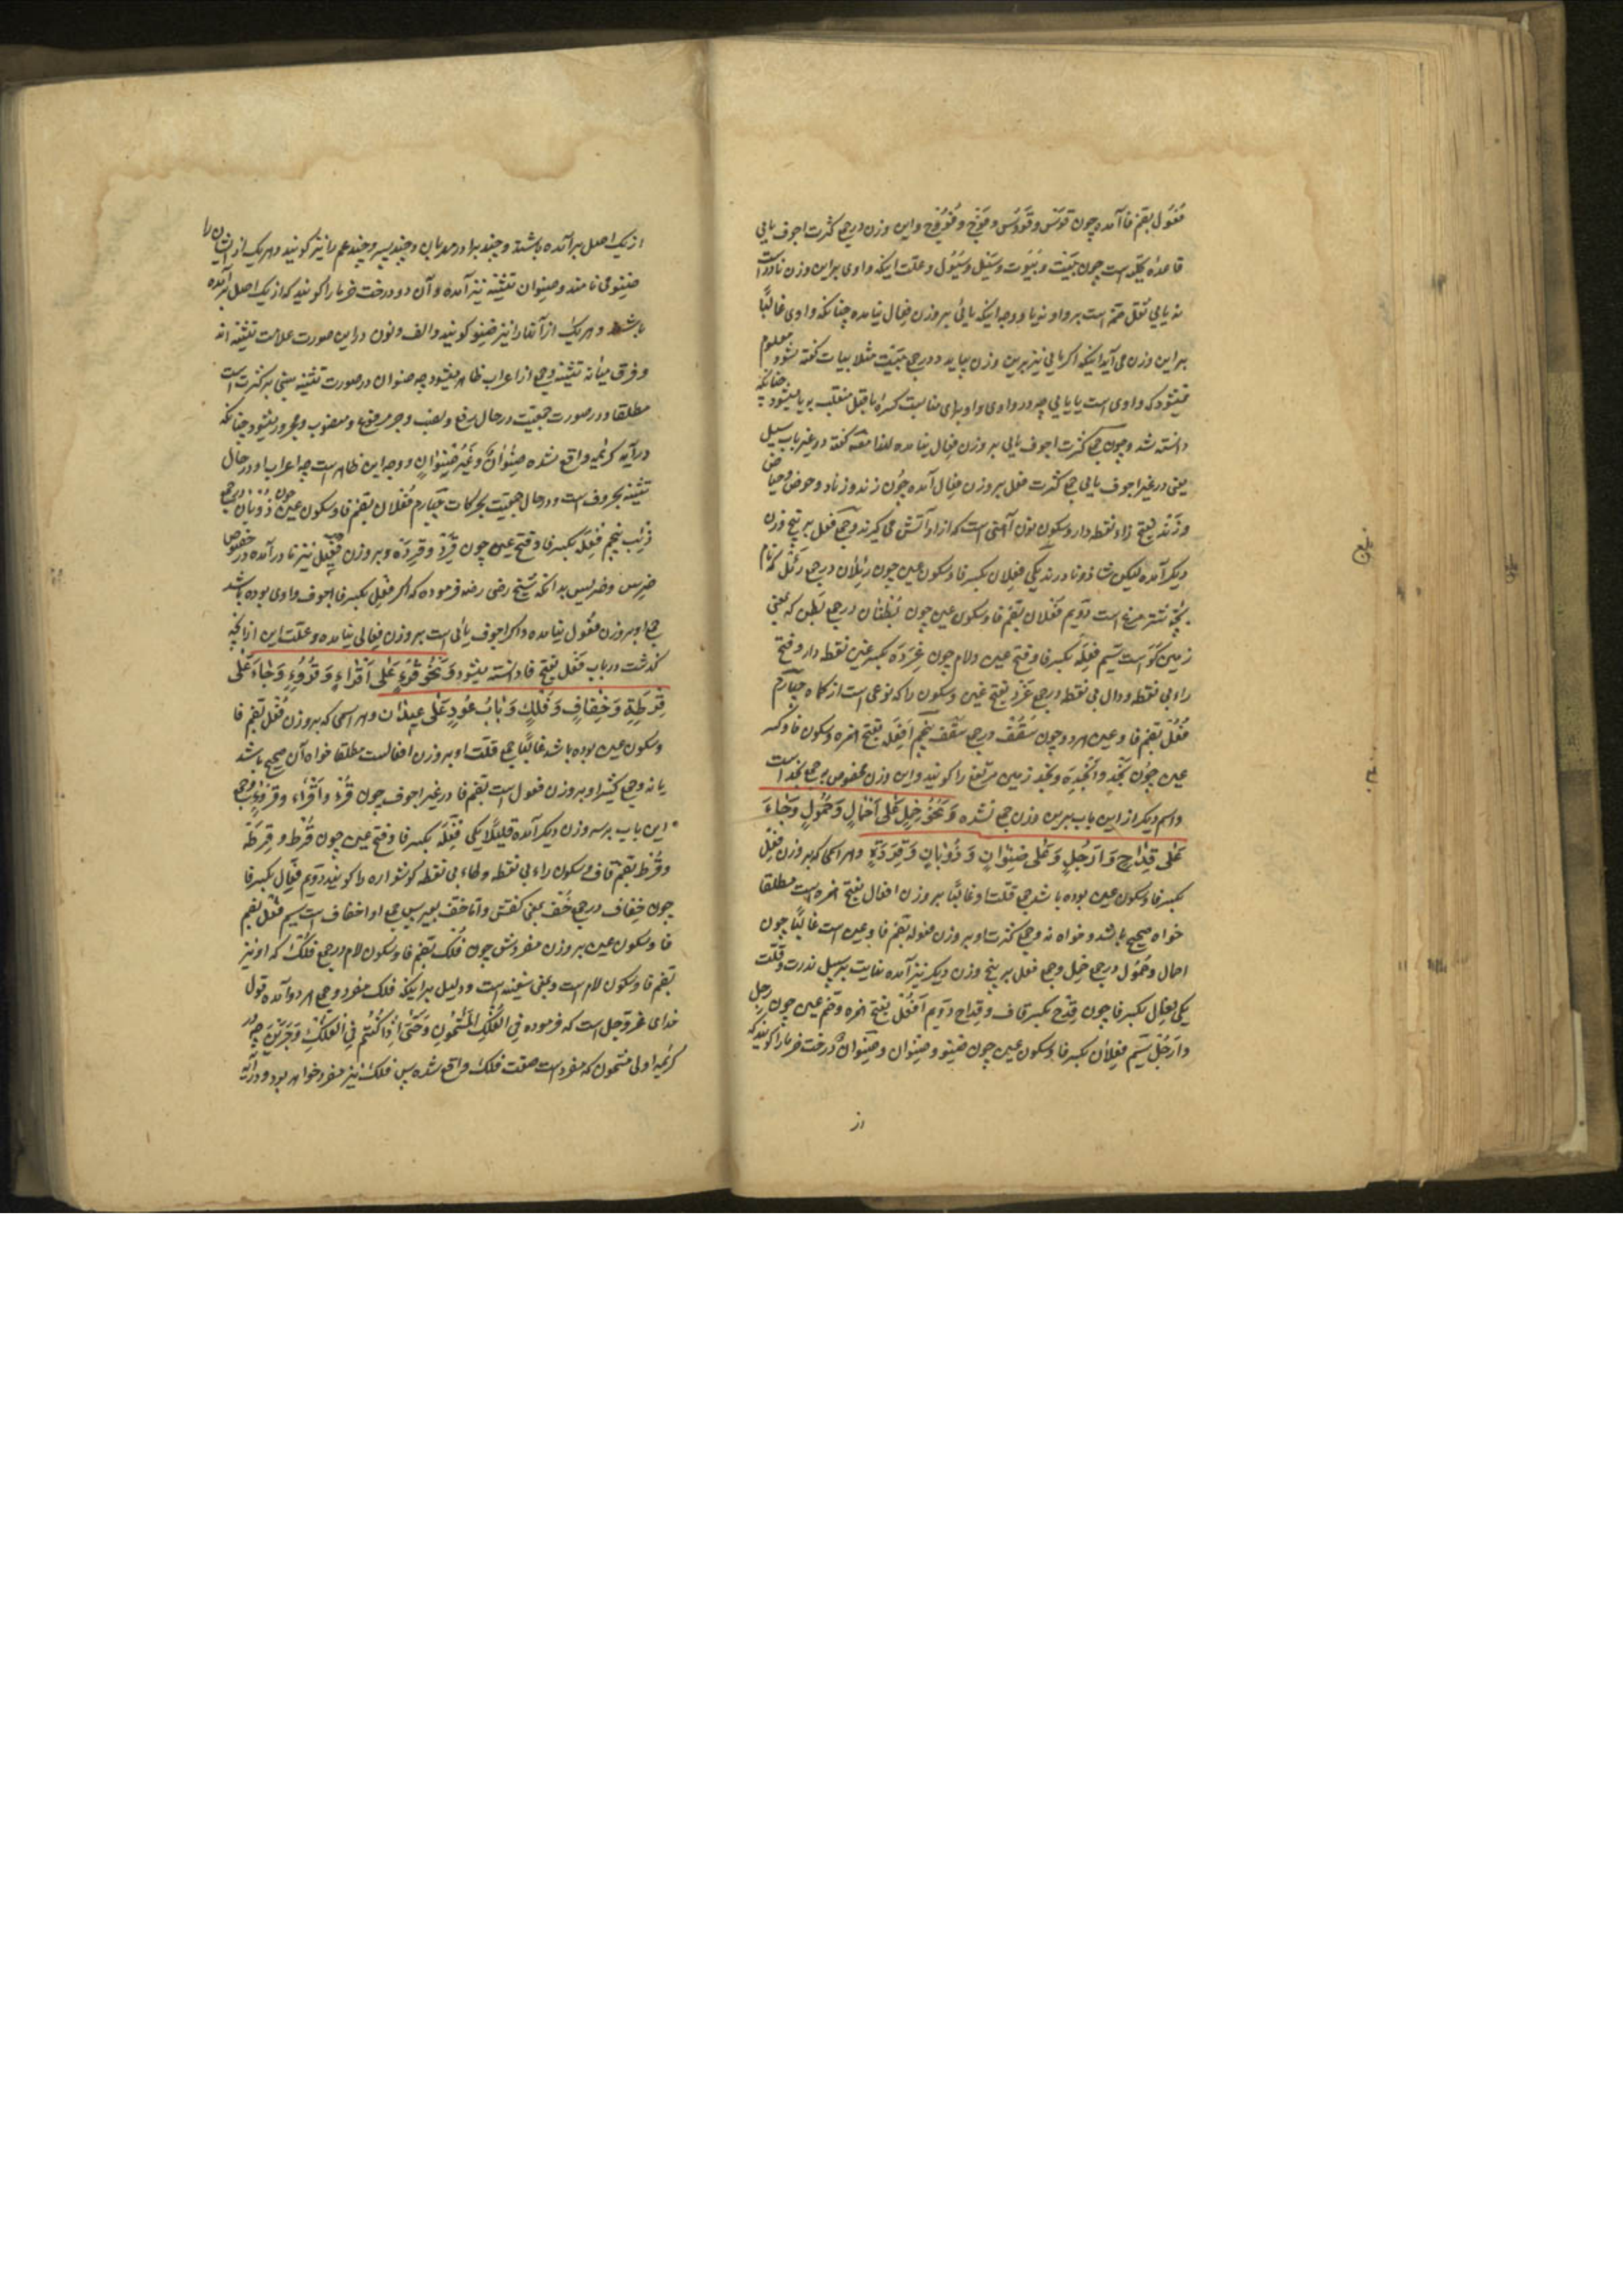 فُعُول بضم فا آمده چون قوس و قُوُس و فوج و فُوُوج و این وزن در جمع کثرت اجوف یایی
قاعده کلیه است چون بَیْت و بُیُوت و سَیْل و سُیُول و علت اینکه واوی برین وزن نادر است
نه یایی ثقل ضم است بر واو نه یا و وجه اینکه یائی بر وزن فِعال نیامده چنانکه واوی غالبًا
برین وزن می آید اینکه اگر یایی نیز برین وزن بیاید و در جمع بَیْت مثلا بیات گفته شود معلوم
نمیشود که واوی است یا یایی چه در واوی واو برای مناسبت کسره ما قبل منقلب به یا میشود چنانکه
دانسته شد و چون جمع کثرت اجوف یایی بر وزن فِعال نیامده لهذا مصنف گفته و در غیر باب سیل
یعنی در غیر اجوف یایی جمع کثرت فعل بر وزن فِعال آمده چون زند و زناد و حوض و حیاض
و زَند بفتح زاء نقطه دار و سکون نون آهنی است که از او آتش می گیرند و جمع فعل بر پنج وزن
دیگر آمده لیکن شاذ و نادرند یکی فِعلان بکسر فا و سکون عین چون رِئلان در جمع رَئْل که نام
بچهٔ شتر مرغ است دویم فُعْلان بضم فا و سکون عین چون بُطْنان در جمع بَطْن که یعنی
زمین گو است سیم فِعَلَة بکسر فا و فتح عین و لام چون غِرَدَة بکسر غین نقطه دار و فتح
راء بی نقطه و دال بی نقطه در جمع غَرْد بفتح غین و سکون را که نوعی است از کماه چهارم
فُعُل بضم فا و عین هر دو چون سُقُف در جمع سَقْف پنجم اَفْعِلَة بفتح همزه و سکون فا و کسر
عین چون نَجْد و اَنْجِدَة و نجد زمین مرتفع را گویند و این وزن مخصوص به جمع نجد است
و اسم دیگر از این باب برین وزن جمع نشده وَ نَحْوُ حِمْلٍ عَلی اَحْمالٍ وَ حُمُولٍ وَ جاءَ
عَلی قِداحٍ وَ اَرْجُلٍ وَ عَلی صِنْوانٍ وَ ذُؤْبانٍ وَ قِرَدَةٍ و هر اسمی که بر وزن فِعْل
بکسر فا و سکون عین بوده باشد جمع قلت او غالبًا بر وزن افعال بفتح همزه است مطلقا
خواه صحیح باشد و خواه نه و جمع کثرت او بر وزن فعول بضم فا و عین است غالبًا چون
احمال و حُمُول در جمع حِمل و جمع فعل بر پنج وزن دیگر نیز آمده بغایت بر سبیل ندرت و قلت
یکی فِعال بکسر فا چون قِدْح بکسر قاف و قِداح دویم اَفْعُل بفتح همزه و ضم عین چون رجل
و اَرْجُل سیم فِعْلان بکسر فا و سکون عین چون صِنْو و صِنْوان و صِنْوان درخت خرما را گویند که
از
از یک اصل بر آمده باشند و چند برادر مهربان و چند پسر و چند عم را نیز گویند و هر یک از ایشان را
صِنو می نامند و صِنوان تثنیه نیز آمده و آن دو درخت خرما را گویند که از یک اصل بر آمده
باشد و هر یک از آنها را نیز صنو گویند و الف و نون در این صورت علامت تثنیه اند
و فرق میانه تثنیه و جمع از اعراب ظاهر میشود چه صنوان در صورت تثنیه مبنی بر کسر است
مطلقا و در صورت جمعیت در حال رفع و نصب و جر مرفوع و منصوب و مجرور میشود چنانکه
در آیه کریمه واقع شده صِنْوانٌ وَ غَیْرُ صِنْوانٍ و وجه این ظاهر است چه اعراب او در حال
تثنیه بحروف است و در حال جمعیت بحرکات چهارم فُعْلان بضم فا و سکون عین چون ذؤبان در جمع
ذِئْب پنجم فِعَلَة بکسر فا و فتح عین چون قِرْد و قِرَدَة و بر وزن فَعِیل نیز نادر آمده در خصوص
ضِرس و ضریس بدانکه شیخ رضی رضه فرموده که اگر فِعْل بکسر فا اجوف واوی بوده باشد
جمع او بر وزن فُعُول نیامده و اگر اجوف یائی است بر وزن فِعالی نیامده و علت این از آنچه
گذشت در باب فَعْل بفتح فا دانسته میشود وَ نَحْوُ قُرْءٍ عَلی اَقْراءٍ وَ قُرُوءٍ وَ جاءَ عَلی
قِرَطَةٍ وَ خِفافٍ وَ فُلْکٍ وَ بابُ عُودٍ عَلی عِیدانٍ و هر اسمی که بر وزن فُعْل بضم فا
و سکون عین بوده باشد غالبًا جمع قلت او بر وزن افعالست مطلقا خواه آن صحیح باشد
یا نه و جمع کثیر او بر وزن فعول است بضم فا در غیر اجوف چون قُرْء و اَقْراء و قروء و جمع
این باب بر سه وزن دیگر آمده قلیلًا یکی فِعَلَة بکسر فا و فتح عین چون قُرْط و قِرَطَة
و قُرْط بضم قاف و سکون راء بی نقطه و طاء بی نقطه گوشواره را گویند دویم فِعال بکسر فا
چون خِفاف در جمع خُف بمعنی کفش و اما خف بعیر پس جمع او اخفاف است سیم فُعْل بضم
فا و سکون عین بر وزن مفردش چون فُلْک بضم فا و سکون لام در جمع فُلْک که او نیز
بضم فا و سکون لام است و بمعنی سفینه است و دلیل بر اینکه فلک مفرد و جمع هر دو آمده قول
خدای عز و جل است که فرموده فِی الْفُلْکِ الْمَشْحُونِ وَ حَتّی اِذا کُنْتُمْ فِی الْفُلْکِ وَ جَرَیْنَ چه در
کریمه اولی مشحون که مفرد است صفت فلک واقع شده پس فلک نیز مفرد خواهد بود و در آیه